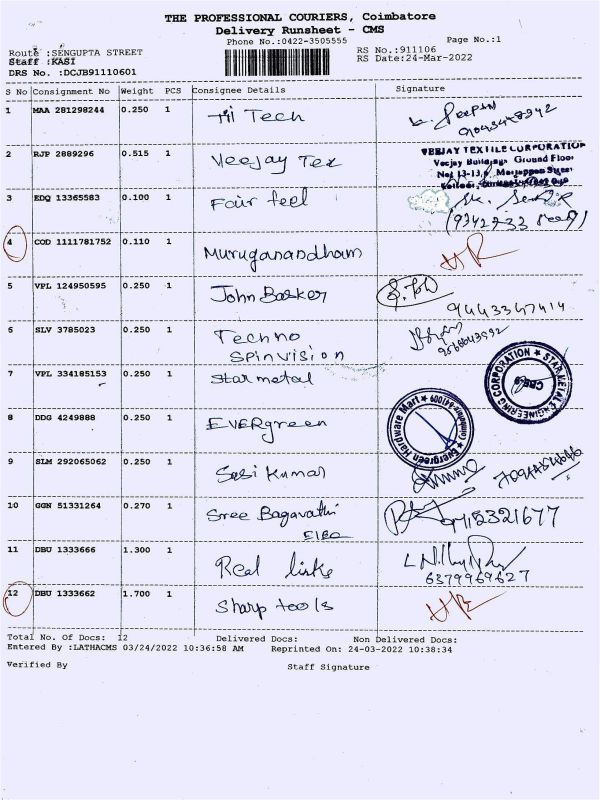 THE PROFESSIONAL COURIERS, Coimbatore
Delivery Runsheet - CMS
Phone No.:0422-3505555 Page No.:1
Route :SENGUPTA STREET RS No.:911106
Staff :KASI RS Date:24-Mar-2022
DRS No. :DCJB91110601
S No Consignment No Weight PCS Consignee Details Signature
1 MAA 281298244 0.250 1 Til Tech
2 RJP 2889296 0.515 1 Veejay Tex VEEJAY TEXTILE CORPORATION
Veejay Buildings Ground Floor
3 EDQ 13365583 0.100 1 Fair feel
4 COD 1111781752 0.110 1 Muruganandham
5 VPL 124950595 0.250 1 John Basker
9443347414
6 SLV 3785023 0.250 1 Techno
Spinvision
7 VPL 334185153 0.250 1 Star metal STAR METAL ENGINEERING CORPORATION
8 DDG 4249888 0.250 1 EVERgreen Evergreen Hardware Mart
9 SLM 292065062 0.250 1 Sasi Kumar
10 GGN 51331264 0.270 1 Sree Bagavathi
11 DBU 1333666 1.300 1 Real links
6379969627
12 DBU 1333662 1.700 1 Sharp tools
Total No. Of Docs: 12 Delivered Docs: Non Delivered Docs:
Entered By :LATHACMS 03/24/2022 10:36:58 AM Reprinted On: 24-03-2022 10:38:34
Verified By Staff Signature